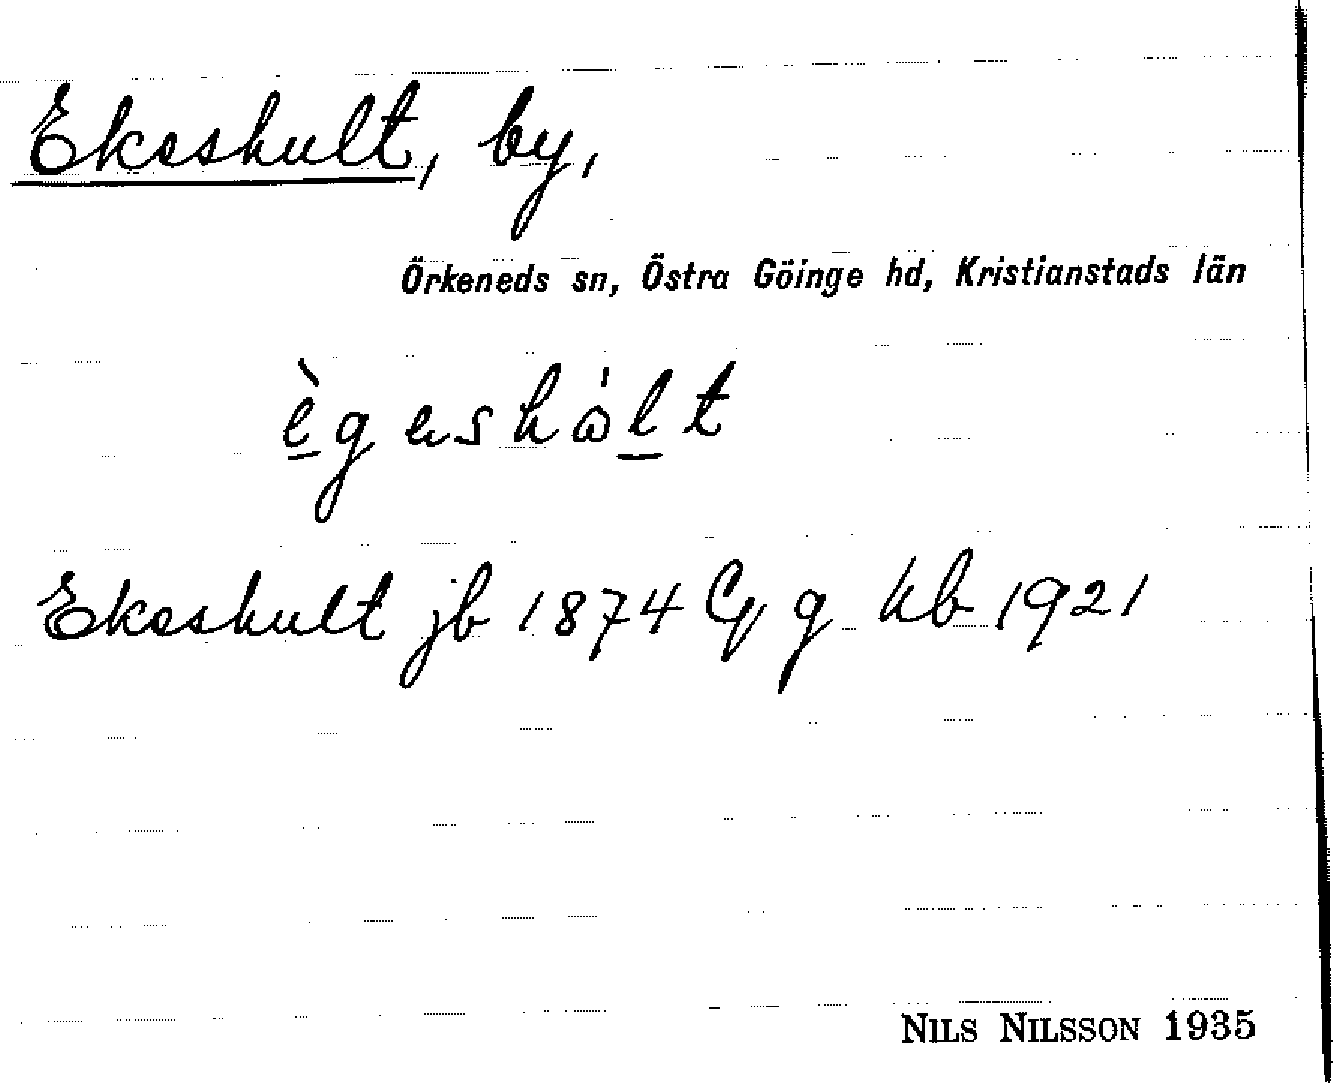 Ekeshult, by,
Örkeneds sn, Östra Göinge hd, Kristianstads län
Ekeshult jb 1874 Gg kb 1921
NILS NILSSON 1935